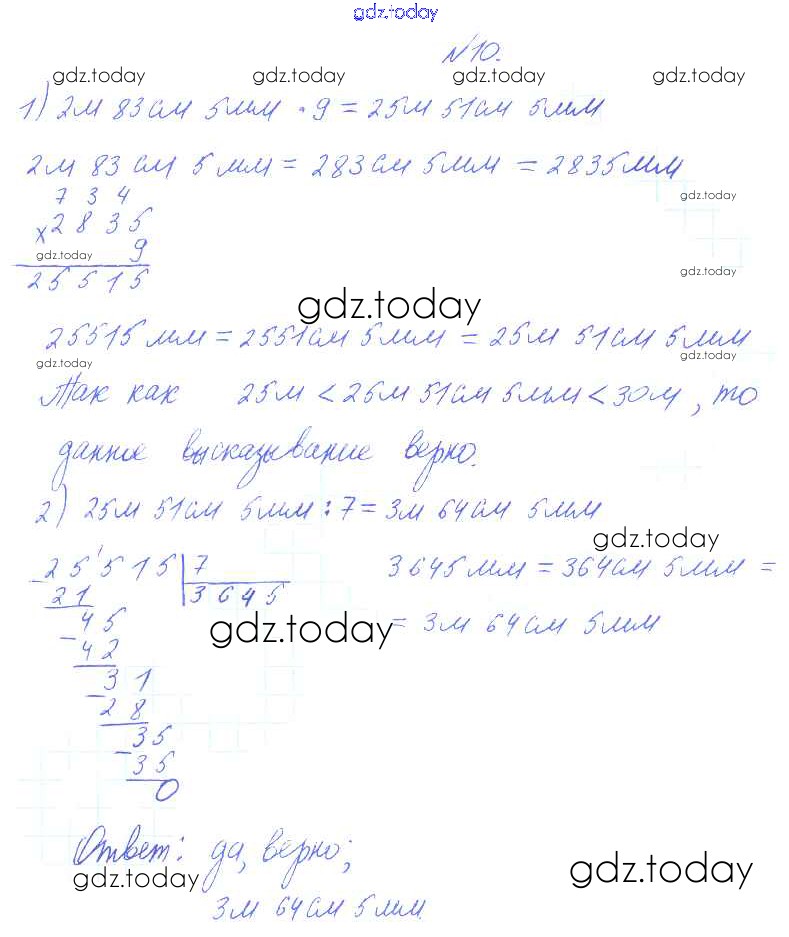 gdz.today
№10.
gdz.today gdz.today gdz.today gdz.today
1) 2м 83см 5мм · 9 = 25м 51см 5мм
2м 83см 5мм = 283см 5мм = 2835мм
7 3 4
gdz.today
× 2 8 3 5
gdz.today 9
gdz.today
2 5 5 1 5
gdz.today
25515мм = 2551см 5мм = 25м 51см 5мм
gdz.today gdz.today
Так как 25м < 25м 51см 5мм < 30м, то
данное высказывание верно.
2) 25м 51см 5мм : 7 = 3м 64см 5мм
gdz.today
- 2 5 5 1 5 | 7 3645мм = 364см 5мм =
2 1 3 6 4 5
- 4 5 gdz.today = 3м 64см 5мм
4 2
- 3 1
2 8
- 3 5
3 5
0
Ответ: да, верно;
gdz.today gdz.today
3м 64см 5мм.